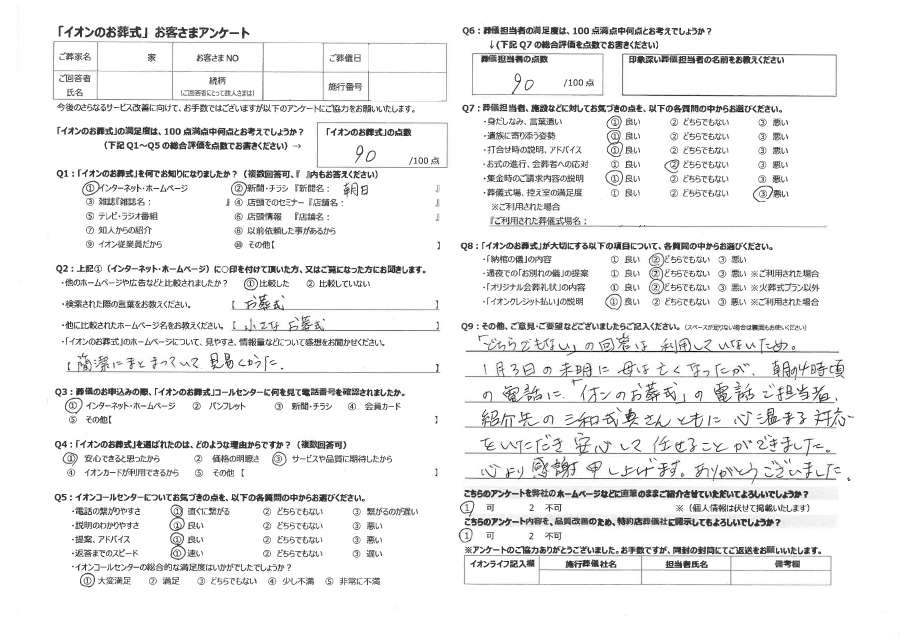 「イオンのお葬式」お客さまアンケート
ご葬家名 家 お客さまNO ご葬儀日
ご回答者氏名 続柄(ご回答者にとって故人さまは) 施行番号
今後のさらなるサービス改善に向けて、お手数ではございますが以下のアンケートにご協力をお願いいたします。
「イオンのお葬式」の満足度は、100点満点中何点とお考えでしょうか?
(下記Q1~Q5の総合評価を点数でお書きください)→
「イオンのお葬式」の点数
90 /100点
Q1:「イオンのお葬式」を何でお知りになりましたか?(複数回答可、『 』内もお答えください)
①インターネット・ホームページ ②新聞・チラシ『新聞名: 朝日 』
③ 雑誌『雑誌名: 』④ 店頭でのセミナー『店舗名: 』
⑤ テレビ・ラジオ番組 ⑥ 店頭情報 『店舗名: 』
⑦ 知人からの紹介 ⑧ 以前依頼した事があるから
⑨ イオン従業員だから ⑩ その他【 】
Q2:上記①(インターネット・ホームページ)に○印を付けて頂いた方、又はご覧になった方にお聞きします。
・他のホームページや広告などと比較されましたか? ①比較した ② 比較していない
・検索された際の言葉をお教えください。 【 お葬式 】
・他に比較されたホームページ名をお教えください。【 小さなお葬式 】
・「イオンのお葬式」のホームページについて、見やすさ、情報量などについて感想をお聞かせください。
【 簡潔にまとまっていて見易くかった。 】
Q3:葬儀のお申込みの際、「イオンのお葬式」コールセンターに何を見て電話番号を確認されましたか。
① インターネット・ホームページ ② パンフレット ③ 新聞・チラシ ④ 会員カード
⑤ その他【 】
Q4:「イオンのお葬式」を選ばれたのは、どのような理由からですか?(複数回答可)
① 安心できると思ったから ② 価格の明瞭さ ③ サービスや品質に期待したから
④ イオンカードが利用できるから ⑤ その他【 】
Q5:イオンコールセンターについてお気づきの点を、以下の各質問の中からお選びください。
・電話の繋がりやすさ ① 直ぐに繋がる ② どちらでもない ③ 繋がるのが遅い
・説明のわかりやすさ ① 良い ② どちらでもない ③ 悪い
・提案、アドバイス ① 良い ② どちらでもない ③ 悪い
・返答までのスピード ① 速い ② どちらでもない ③ 遅い
・イオンコールセンターの総合的な満足度はいかがでしたでしょうか?
① 大変満足 ② 満足 ③ どちらでもない ④ 少し不満 ⑤ 非常に不満
Q6:葬儀担当者の満足度は、100点満点中何点とお考えでしょうか?
↓(下記Q7の総合評価を点数でお書きください)
葬儀担当者の点数 印象深い葬儀担当者の名前をお教えください
90 /100点
Q7:葬儀担当者、施設などに対してお気づきの点を、以下の各質問の中からお選びください。
・身だしなみ、言葉遣い ① 良い ② どちらでもない ③ 悪い
・遺族に寄り添う姿勢 ① 良い ② どちらでもない ③ 悪い
・打合せ時の説明、アドバイス ① 良い ② どちらでもない ③ 悪い
・お式の進行、会葬者への応対 ① 良い ② どちらでもない ③ 悪い
・集金時のご請求内容の説明 ① 良い ② どちらでもない ③ 悪い
・葬儀式場、控え室の満足度 ① 良い ② どちらでもない ③ 悪い
※ご利用された場合
『ご利用された葬儀式場名: 』
Q8:「イオンのお葬式」が大切にする以下の項目について、各質問の中からお選びください。
・「納棺の儀」の内容 ① 良い ② どちらでもない ③ 悪い
・通夜での「お別れの儀」の提案 ① 良い ② どちらでもない ③ 悪い ※ご利用された場合
・「オリジナル会葬礼状」の内容 ① 良い ② どちらでもない ③ 悪い ※火葬式プラン以外
・「イオンクレジット払い」の説明 ① 良い ② どちらでもない ③ 悪い ※ご利用された場合
Q9:その他、ご意見・ご要望などございましたらご記入ください。(スペースが足りない場合は裏面もお使いください)
「どちらでもない」の回答は利用していないため。
1月3日の未明に母は亡くなったが、朝の4時頃
の電話に「イオンのお葬式」の電話で担当者、
紹介先の三和式典さんともに心温まる対応
をいただき安心して任せることができました。
心より感謝申し上げます。ありがとうございました。
こちらのアンケートを弊社のホームページなどに直筆のままご紹介させていただいてよろしいでしょうか?
1 可 2 不可 ※(個人情報は伏せて掲載いたします)
こちらのアンケート内容を、品質改善のため、特約店葬儀社に開示してもよろしいでしょうか?
1 可 2 不可
※アンケートのご協力ありがとうございました。お手数ですが、同封の封筒にてご返送をお願いいたします。
イオンライフ記入欄 施行葬儀社名 担当者氏名 備考欄